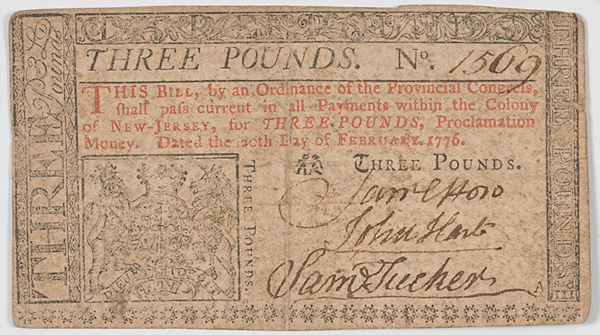 THREE POUNDS. No. 1569
THIS BILL, by an Ordinance of the Provincial Congreſs,
ſhall paſs current in all Payments within the Colony
of NEW-JERSEY, for THREE POUNDS, Proclamation
Money. Dated the 20th Day of FEBRUARY, 1776.
THREE POUNDS.
Saml How
John Hart
Saml Tucker
THREE POUNDS.
THREE
£3
Pounds
THREE POUNDS
DIEU ET
A
III